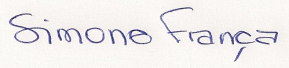 Simone França